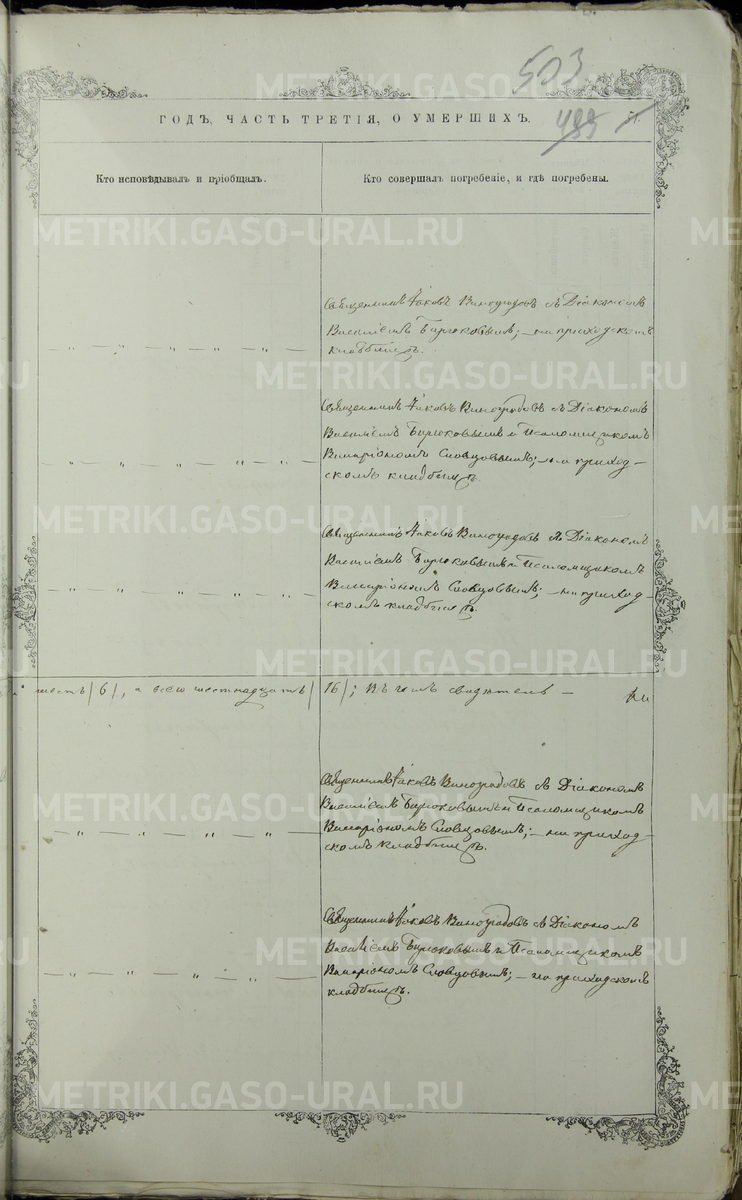 503
485
ГОДЪ, ЧАСТЬ ТРЕТІЯ, О УМЕРШИХЪ.
Кто исповѣдывалъ и пріобщалъ.
Кто совершалъ погребеніе, и гдѣ погребены.
Священникъ Іаковъ Виноградовъ съ Діакономъ
Василіемъ Бирюковымъ; – на приходскомъ
кладбищѣ.
Священникъ Іаковъ Виноградовъ съ Діакономъ
Василіемъ Бирюковымъ и Псаломщикомъ
Иларіономъ Словцовымъ; – на приход–
скомъ кладбищѣ.
Священникъ Іаковъ Виноградовъ съ Діакономъ
Василіемъ Бирюковымъ и Псаломщикомъ
Иларіономъ Словцовымъ; – на приход–
скомъ кладбищѣ.
шесть /6/, а всего шестнадцать /16/; въ чемъ свидѣтель –
Священникъ Іаковъ Виноградовъ съ Діакономъ
Василіемъ Бирюковымъ и Псаломщикомъ
Иларіономъ Словцовымъ; – на приход–
скомъ кладбищѣ.
Священникъ Іаковъ Виноградовъ съ Діакономъ
Василіемъ Бирюковымъ и Псаломщикомъ
Иларіономъ Словцовымъ; – на приходскомъ
кладбищѣ.
METRIKI.GASO-URAL.RU